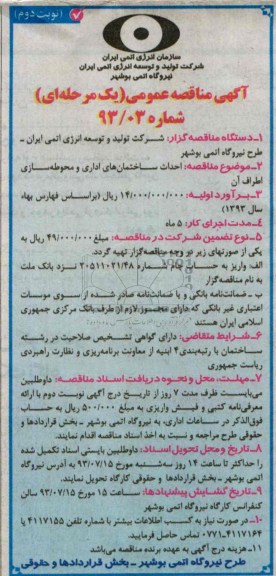 (نوبت دوم)
سازمان انرژی اتمی ایران
شرکت تولید و توسعه انرژی اتمی ایران
نیروگاه اتمی بوشهر
آگهی مناقصه عمومی (یک مرحله‌ای)
شماره ۹۳/۰۳
۱-دستگاه مناقصه‌گزار: شرکت تولید و توسعه انرژی اتمی ایران -
طرح نیروگاه اتمی بوشهر
۲-موضوع مناقصه: احداث ساختمان‌های اداری و محوطه‌سازی
اطراف آن
۳-برآورد اولیه: ۱۴/۰۰۰/۰۰۰/۰۰۰ ریال (براساس فهارس بهاء
سال ۱۳۹۳)
۴-مدت اجرای کار: ۵ ماه
۵-نوع تضمین شرکت در مناقصه: مبلغ ۴۹/۰۰۰/۰۰۰ ریال به
یکی از صورتهای زیر در وجه مناقصه‌گزار تهیه گردد.
الف: واریز به حساب جام شماره ۲۰۵۱۱۰۲۱/۴۸ نزد بانک ملت
به نام مناقصه‌گزار
ب - ضمانت‌نامه بانکی و یا ضمانت‌نامه صادر شده از سوی موسات
اعتباری غیر بانکی که دارای مجوز لازم از طرف بانک مرکزی جمهوری
اسلامی ایران هستند
۶-شرایط متقاضی: دارای گواهی تشخیص صلاحیت در رشته
ساختمان با رتبه‌بندی ۴ ابنیه از معاونت برنامه‌ریزی و نظارت راهبردی
ریاست جمهوری
۷-مهلت، محل و نحوه دریافت اسناد مناقصه: داوطلبین
می‌بایست ظرف مدت ۷ روز از تاریخ درج آگهی نوبت دوم با ارائه
معرفی‌نامه کتبی و فیش واریزی به مبلغ ۵۰۰/۰۰۰ ریال به حساب
فوق‌الذکر در ساعات اداری، به نیروگاه اتمی بوشهر - بخش قراردادها و
حقوقی طرح مراجعه و نسبت به اخذ اسناد مناقصه اقدام نمایند.
۸-تاریخ و محل تحویل اسناد: داوطلبین بایستی اسناد تکمیل شده
را حداکثر تا ساعت ۱۴ روز سه‌شنبه مورخ ۹۳/۰۷/۱۵ به آدرس نیروگاه
اتمی بوشهر - بخش قراردادها و حقوقی کارگاه تحویل نمایند.
۹-تاریخ گشایش پیشنهادها: ساعت ۱۵ مورخ ۹۳/۰۷/۱۵ سالن
کنفرانس کارگاه نیروگاه اتمی بوشهر
۱۰-در صورت نیاز به کسب اطلاعات بیشتر با شماره تلفن ۴۱۱۷۱۵۵ یا
۰۷۷۱-۴۱۱۷۱۶۴ تماس حاصل فرمایید.
۱۱-هزینه درج آگهی به عهده برنده مناقصه می‌باشد
طرح نیروگاه اتمی بوشهر - بخش قراردادها و حقوقی